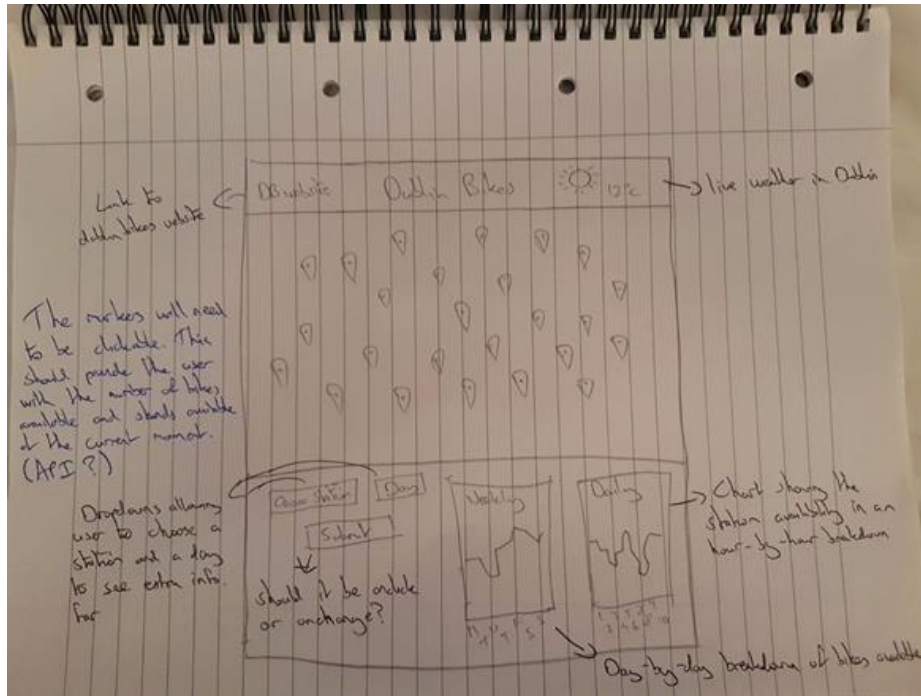 DB website
Dublin Bikes
12°C
live weather in Dublin
Link to
dublin bikes website
The markers will need
to be clickable. This
should provide the user
with the number of bikes
available and stands available
at the current moment.
(API?)
Dropdowns allowing
user to choose a
station and a day
to see extra info.
for
Choose Station
Day
Submit
should it be onclick
or onchange?
Weekly
M T W T F S S
Daily
Chart showing the
station availability in an
hour-by-hour breakdown
Day-by-day breakdown of bikes available